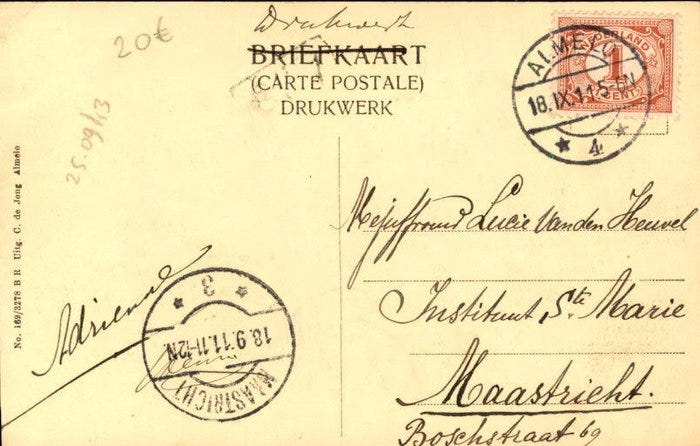 20€
Drukwerk
BRIEFKAART
(CARTE POSTALE)
DRUKWERK
25.09/13
NEDERLAND
1
CENT
ALMELO
18.IX.11.5-6N
4
Mejuffrouw Lucie Vanden Heuvel
Instituut Ste Marie
Maastricht.
Boschstraat 69
Adrienne
3
18.9.11.11-12N
MAASTRICHT
No. 169/3278 B R Uitg. C. de Jong Almelo